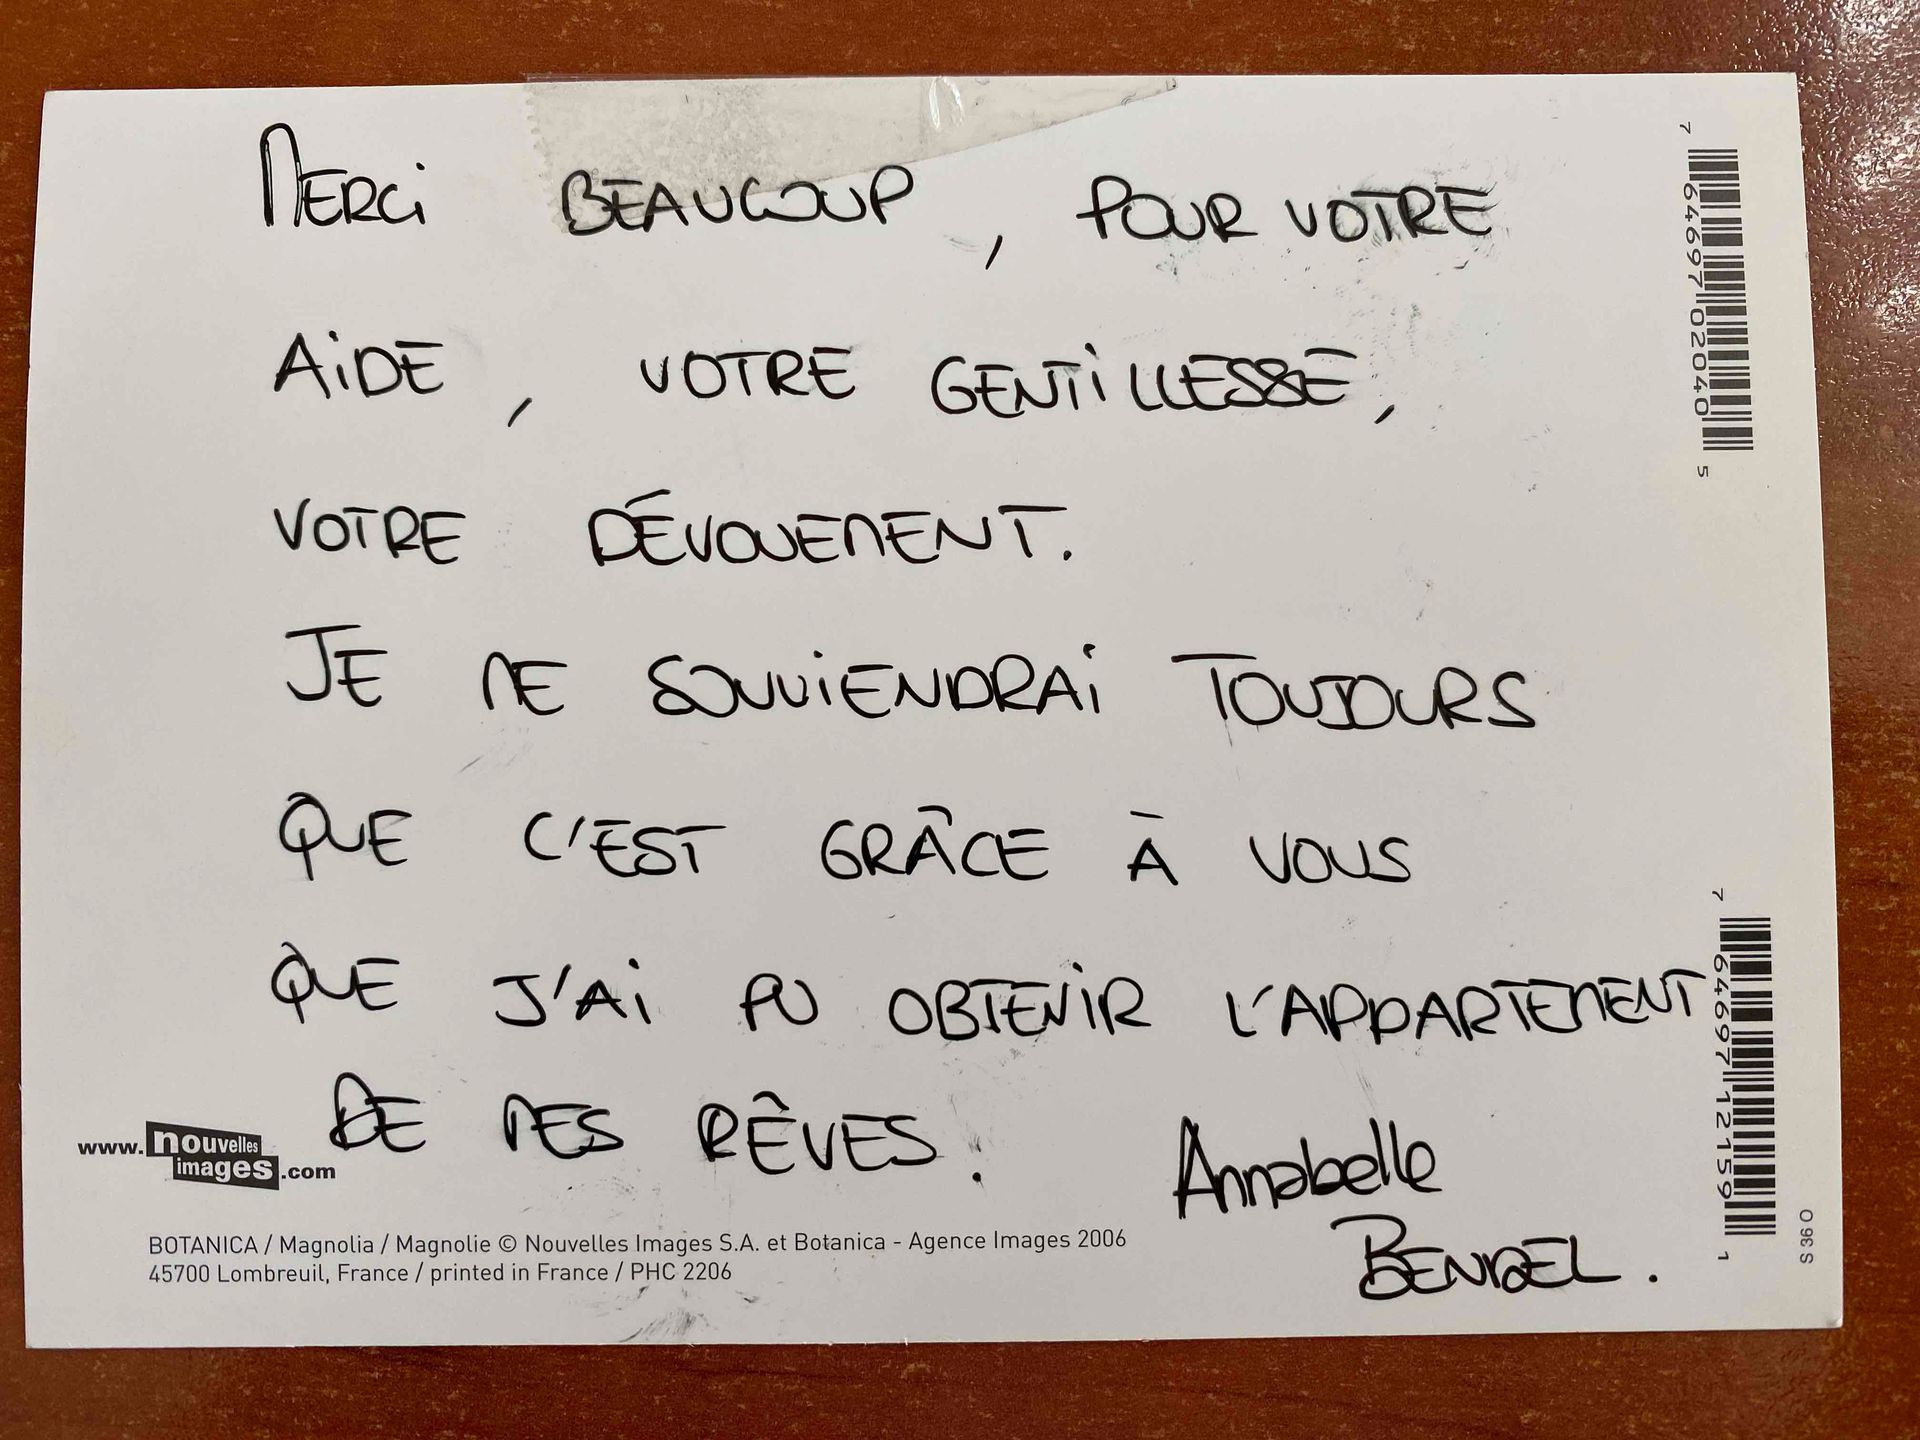 MERCI BEAUCOUP, POUR VOTRE
AIDE, VOTRE GENTILLESSE,
VOTRE DÉVOUEMENT.
JE ME SOUVIENDRAI TOUJOURS
QUE C'EST GRÂCE À VOUS
QUE J'AI PU OBTENIR L'APPARTEMENT
DE MES RÊVES.
Annabelle
BENDEL.
www.nouvelles
images.com
BOTANICA / Magnolia / Magnolie © Nouvelles Images S.A. et Botanica - Agence Images 2006
45700 Lombreuil, France / printed in France / PHC 2206
7 64697 02040 5
7 64697 12159 1
S 36 O